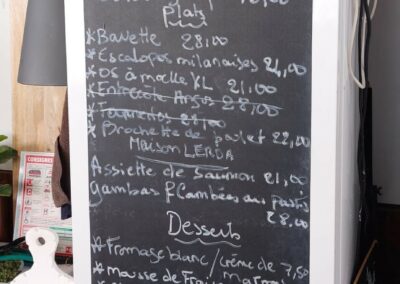 Plats
*Bavette 28,00
*Escalopes milanaises 24,00
*Os à moelle XL 21,00
*Entrecôte Angus 28,00
*Brochette de poulet 22,00
Maison LERDA
Assiette de saumon 21,00
gambas flambées au pastis
28,00
Desserts
*Fromage blanc/Crème de 7,50
marrons
*mousse de
CONSIGNES